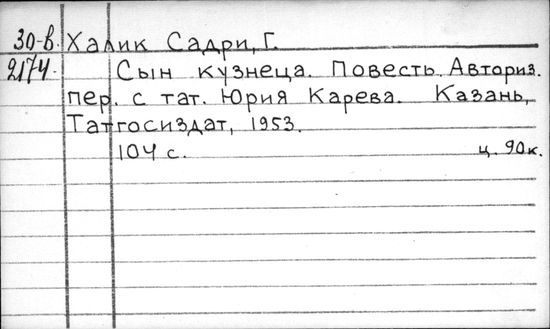 30-в. Халик Садри, Г.
2174. Сын кузнеца. Повесть. Авториз.
пер. с тат. Юрия Карева. Казань,
Татгосиздат, 1953.
104 с. ц. 90к.